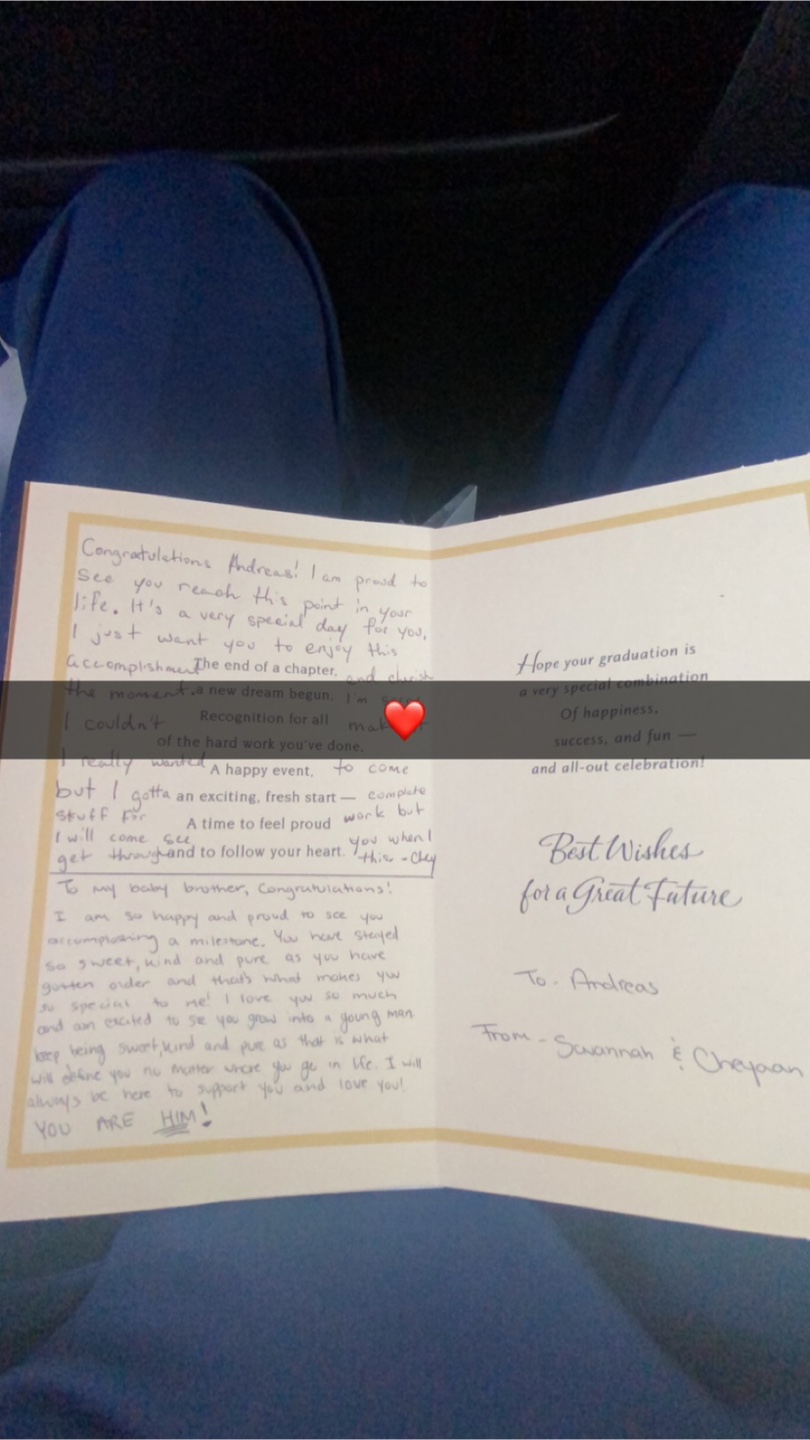 Congratulations Andreas! I am proud to
see you reach this point in your
life. It's a very special day for you,
I just want you to enjoy this
accomplishment The end of a chapter, and cherish
the moment. a new dream begun. I'm
I couldn't Recognition for all make
of the hard work you've done.
I really wanted A happy event, to come
but I gotta an exciting, fresh start — complete
stuff for A time to feel proud work but
I will come see you when I
get through and to follow your heart. this - Chey
To my baby brother, Congratulations!
I am so happy and proud to see you
accomplishing a milestone. You have stayed
so sweet, kind and pure as you have
gotten older and that's what makes you
so special to me! I love you so much
and am excited to see you grow into a young man
keep being sweet, kind and pure as that is what
will define you no matter where you go in life. I will
always be here to support you and love you!
YOU ARE HIM!
Hope your graduation is
a very special combination
Of happiness,
success, and fun —
and all-out celebration!
Best Wishes
for a Great Future
To - Andreas
From - Savannah & Cheyaan